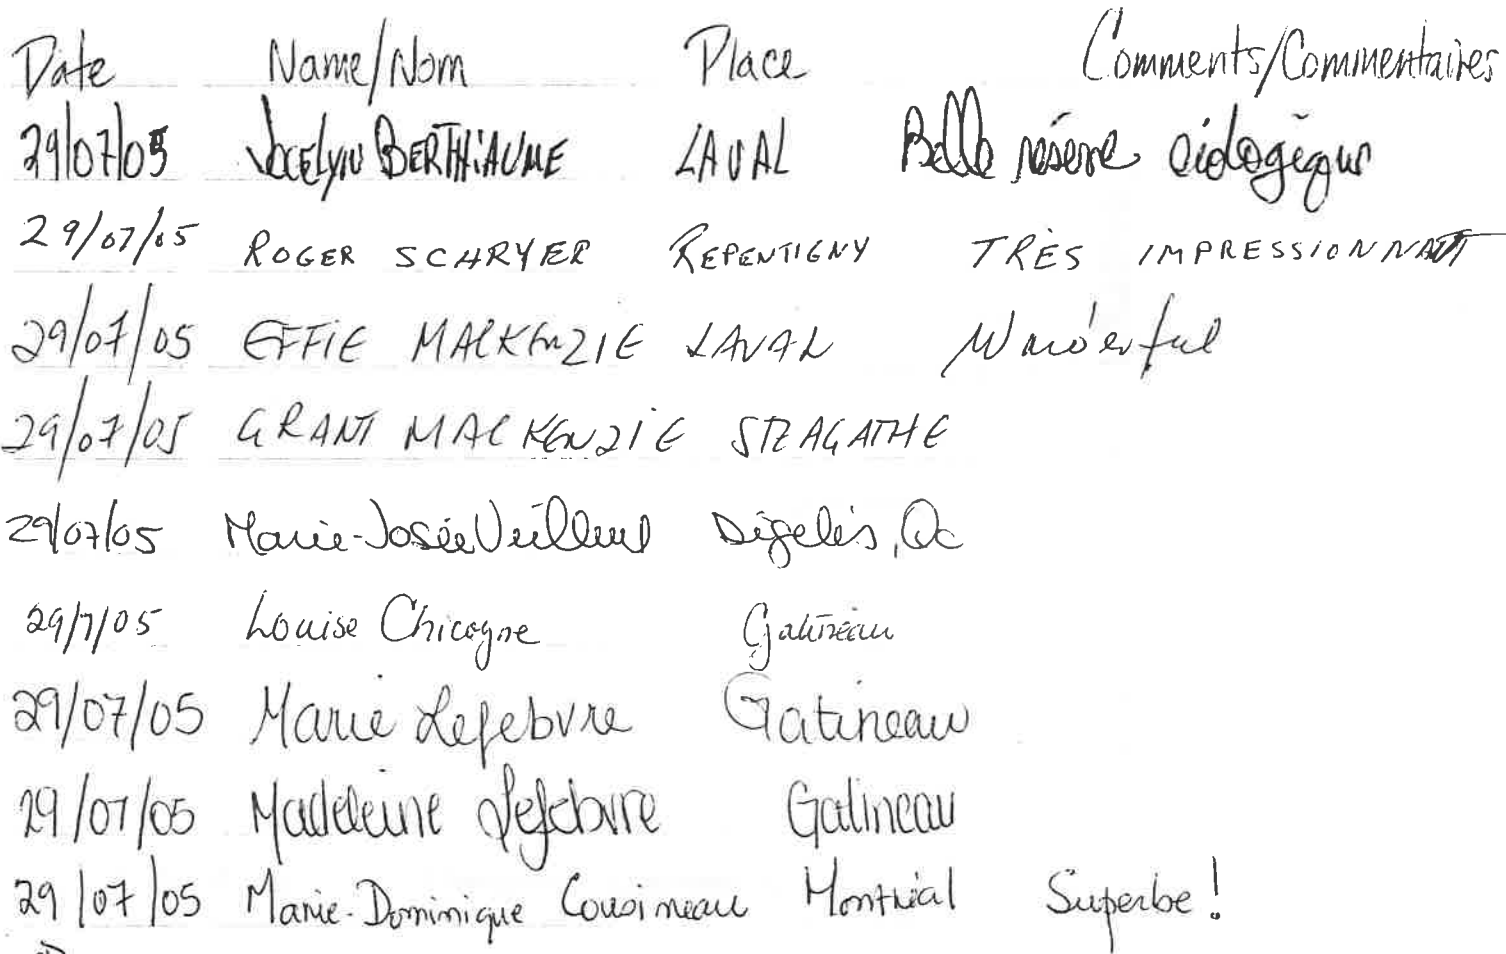 Date Name/Nom Place Comments/Commentaires
29/07/05 Jocelyn BERTHiAUME LAVAL Belle réserve écologique
29/07/05 ROGER SCHRYER REPENTIGNY TRÈS IMPRESSIONNANT
29/07/05 EFFIE MACKENZIE LAVAL Wonderful
29/07/05 GRANT MACKENZIE STE AGATHE
29/07/05 Marie-Josée Veilleux Dégelis, Qc
29/7/05 Louise Chicoyne Gatineau
29/07/05 Marie Lefebvre Gatineau
29/07/05 Madeleine Lefebvre Gatineau
29/07/05 Marie-Dominique Cousineau Montréal Superbe!